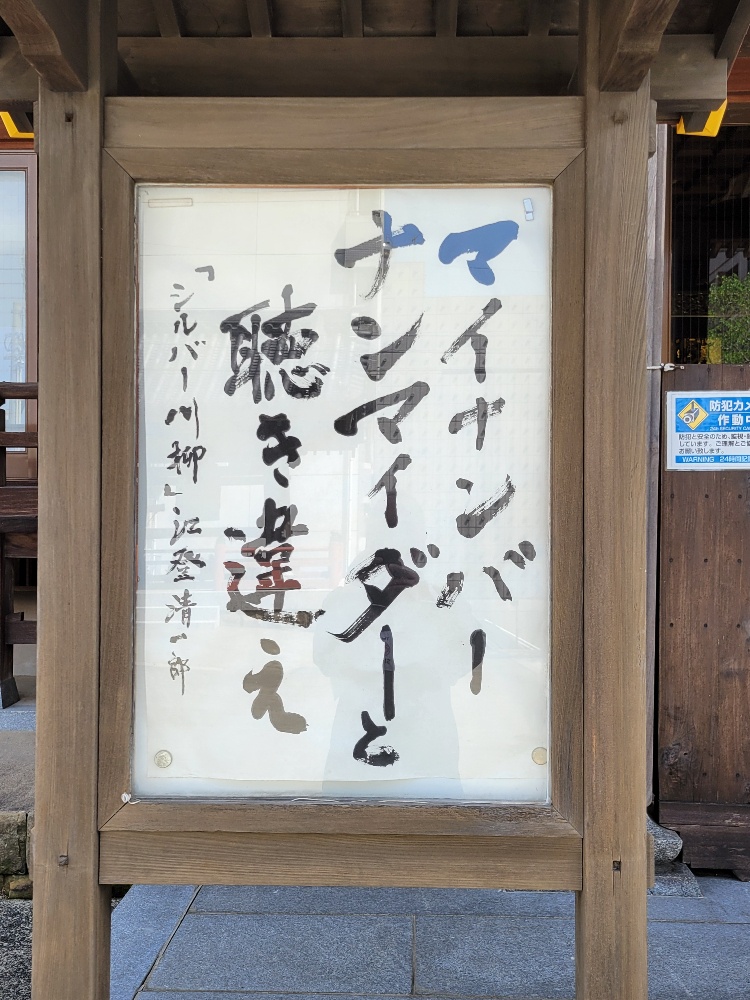 マイナンバー
ナンマイダーと
聴き違え
「シルバー川柳」江登清一郎
防犯カメ
作動中
防犯と安全のため、監視・
しています。ご理解とご
お願い致します。
WARNING 24時間